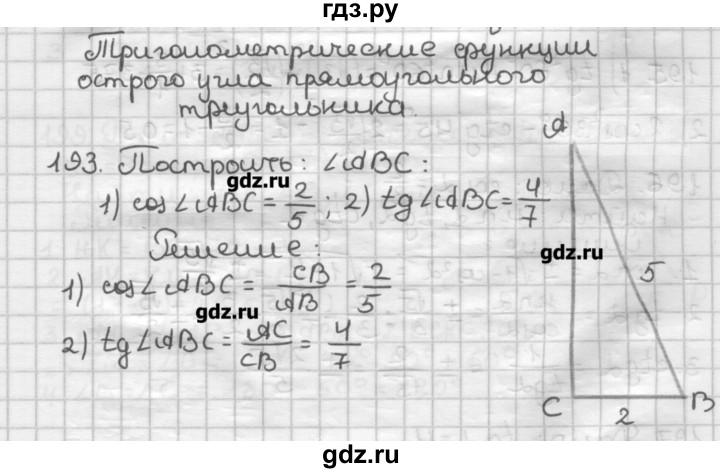 гдз.ру
Тригонометрические функции
острого угла прямоугольного
треугольника.
193. Построить: ∠ABC:
gdz.ru
1) cos∠ABC = 2/5 ; 2) tg∠ABC = 4/7
Решение:
gdz.ru
1) cos∠ABC = CB/AB = 2/5
gdz.ru
2) tg∠ABC = AC/CB = 4/7
A
5
C
2
B
gdz.ru